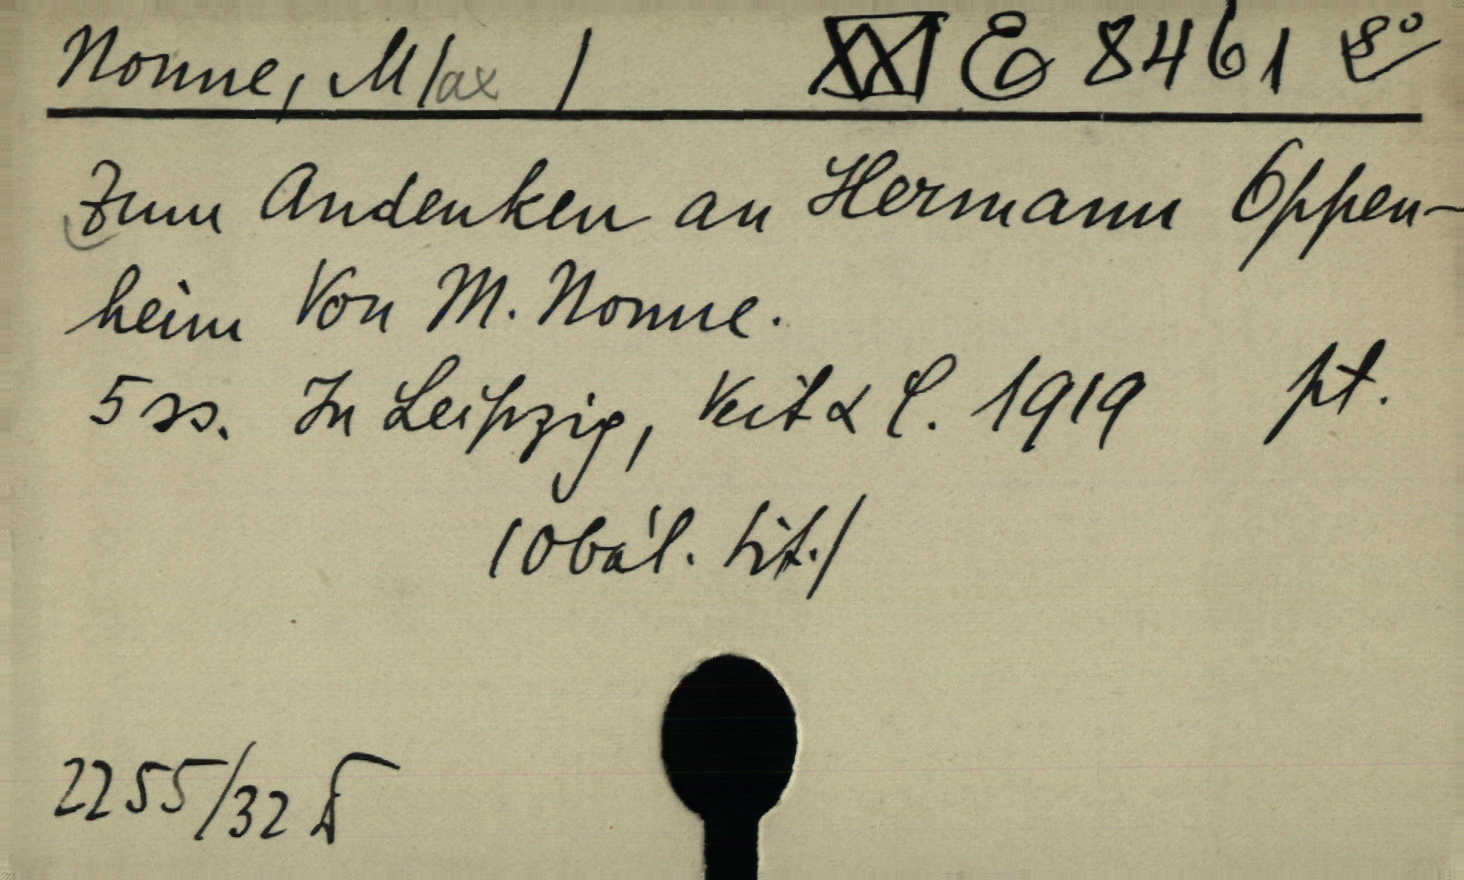 Nonne, M/ax / XXI E 8461 8°
Zum Andenken an Hermann Oppen-
heim Von M. Nonne.
5 ss. In Leipzig, Veit & C. 1919 pt.
(Obál. tit./
2255/32